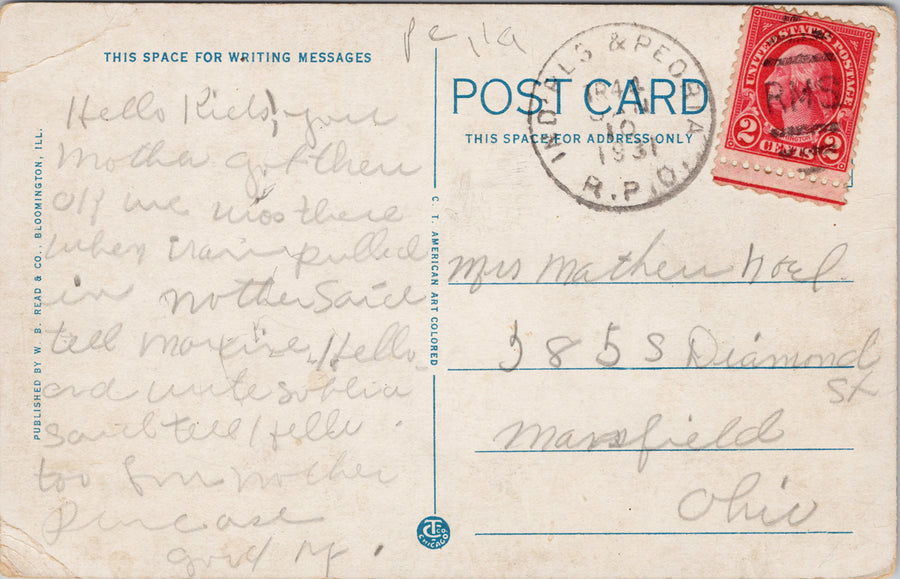 THIS SPACE FOR WRITING MESSAGES
Hello Kids, you
Mother got then
off we was there
when train pulled
in Mother Said
tell Maxine Hello
and
Said tell Hello
too from Mother
good
PUBLISHED BY W. B. READ & CO., BLOOMINGTON, ILL.
C. T. AMERICAN ART COLORED
CT CO
CHICAGO
POST CARD
THIS SPACE FOR ADDRESS ONLY
IND'PLS & PEORIA
10
1931
R.P.O.
RMS
UNITED STATES POSTAGE
2 CENTS 2
Mrs Mathew Noel
385 S Diamond
St
Mansfield
Ohio